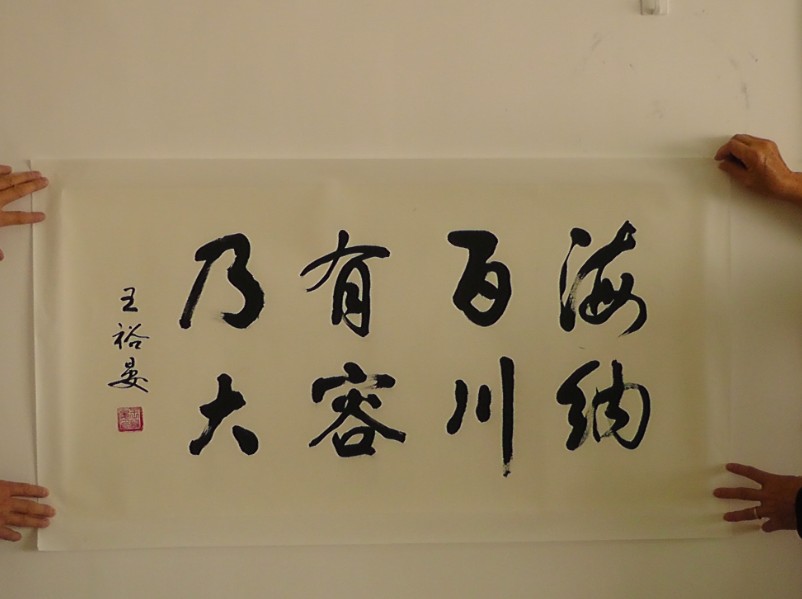 海纳
百川
有容
乃大
王裕晏